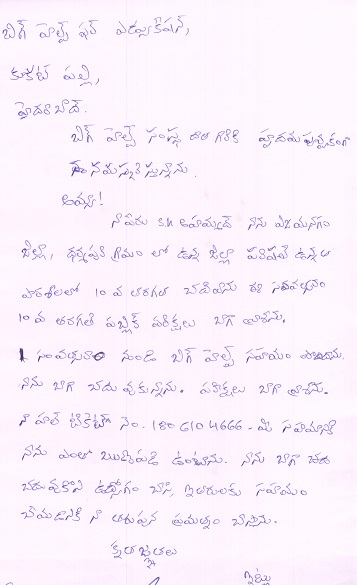 బిగ్ హెల్ప్ ఫర్ ఎడ్యుకేషన్,
కుకట్ పల్లి,
హైదరాబాద్.
బిగ్ హెల్ప్ సంస్థ దాతలకి హృదయపూర్వకంగా
నమస్కరిస్తున్నాను.
అమ్మా!
నా పేరు S.K అహమ్మద్ నాను విజయనగరం
జిల్లా, ధర్మపురి గ్రామం లో ఉన్న జిల్లా పరిషత్ ఉన్నత
పాఠశాలలో 10 వ తరగతి చదివాను ఈ సంవత్సరం
10 వ తరగతి పబ్లిక్ పరీక్షలు బాగా వ్రాశాను.
1 సంవత్సరం నుండి బిగ్ హెల్ప్ సహాయం
నాను బాగా చదువుకున్నాను. పరీక్షలు బాగా వ్రాశాను.
నా హాల్ టికెట్ నెం. 180 610 4666 - మీ సహాయానికి
నాను ఎంతో ఋణపడి ఉంటాను. నాను బాగా
చదువుకొని ఉద్యోగం చేసి, ఇతరులకు సహాయం
చేయడానికి నా తరుపున ప్రయత్నం చేస్తాను.
కృతజ్ఞతలు
ఇట్లు